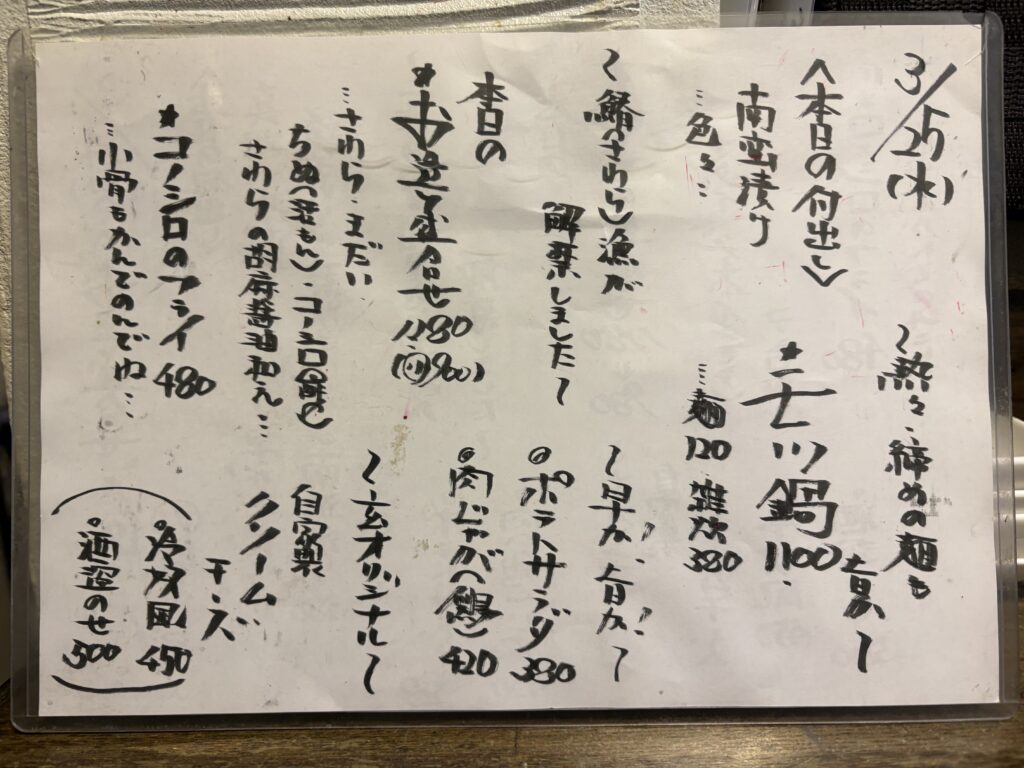 3/25(水)
〈本日の付出し〉
南蛮漬け
…色々…
〜鰆(さわら)漁が
解禁しました〜
本日の
*お造り盛合せ
1180
(ハーフ900)
…さわら・まだい
ちぬ(活もん)・コノシロ(鮮)
さわらの胡麻醤油和え…
*コノシロのフライ 480
…小骨もかんでのんでね…
〜熱々・締めの麺も
旨め〜
*二七川鍋
1100
…麺120 雑炊380
〜早ガ!旨ガ!〜
◎ポテトサラダ 380
◎肉じゃが(鶏) 420
〜玄オリジナル〜
自家製
クリーム
チーズ
°冷奴風 450
°酒盗のせ 500